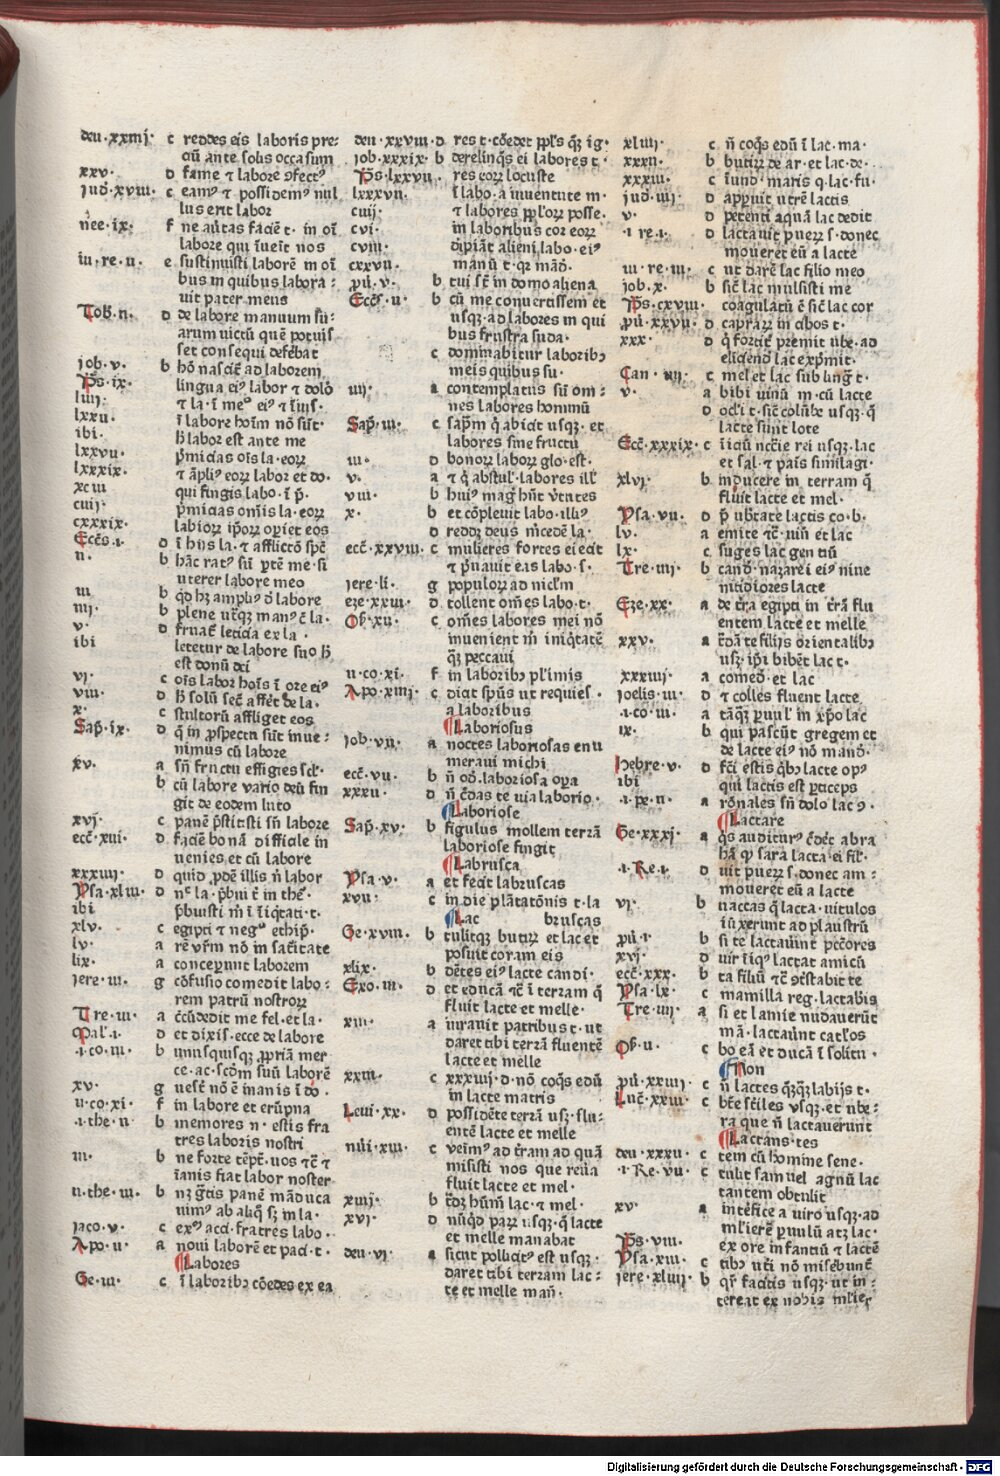 deu·xxiiij· c reddes eis laboris pre⸗
ciū ante solis occasum
xxv· d fame ⁊ labore ꝯfectꝰ
jud·xviii· c eamꝰ ⁊ possidemꝰ nul
lus erit labor
nee·ix· f ne au̅tas facie̅ t· in oı̅
labore qui i̅ueit nos
iii·re·ii· e sustinuisti labore̅ in oı̅
bus in quibus labora⸗
uit pater meus
Tob·ii· d de labore manuum su⸗
arum victū que̅ potuis
set consequi defe̅bat
job·v· b ho̅ nascit̅ ad laborem
Ps·ix· lingua eiꝰ labor ⁊ dolo̅
liiij· ⁊ la·i̅ me⁰ eiꝰ ⁊ i̅ius·
lxxii· i̅ labore hoı̅m no̅ su̅t·
ibi· labor est ante me
lxxvii· p̅micias oı̅s la·eoꝝ
lxxxix· ⁊ a̅pliꝰ eoꝝ labor et do·
xciii qui fingis labo·i̅ p̅·
ciiij· p̅micias om̅is la·eoꝝ
cxxxix· labioꝝ ip̅oꝝ op̅iet eos
Ecc̅s·i· d i̅ hijs la·⁊ afflicto̅ sp̅c
ii· b ha̅c ratꝰ su̅ p̅te̅ me·si
uterer labore meo
iii b qd hꝫ ampliꝰ d̅ labore
iiij· b plene ut̅qꝫ manꝰ c̅ la·
v· d fruat̅ leticia ex la·
ibi letetur de labore suo
est donū dei
vj· c oı̅s labor hoı̅s i̅ ore eiꝰ
viii· d solū sec̅ affe̅t de la·
x· c stultorū affliget eos
Sap̅·ix· d q̅ in p̅spectu su̅t inue⸗
nimus cū labore
xv· a sn̅ fructu effigies scl̅·
b cū labore vario deū fin
git de eodem luto
xvj· c pane̅ p̅stitisti sn̅ labore
ecc̅·xiii· d facie̅ bona̅ difficile in
uenies et cū labore
xxxiiij· d quid p̅de̅ illis n̅ labor
Psa·xliii· d nᶜ la·p̅bui t̅ in the̅·
ibi p̅buisti m̅ i̅ i̅iq̅tati·t·
xlv· c egipti ⁊ neg⁰ ethip̅·
lv· a re̅ vr̅m no̅ in saci̅tate
lix· a conceperunt laborem
jere·iii· g co̅fusio comedit labo⸗
rem patrū nostroꝝ
Tre·iii· a cc̅u̅dedit me fel·et la·
Mal̅·i· d et dixis·ecce de labore
·i·co·iii· b unusquisqꝫ p̅pria̅ mer
ce·ac·sc̅om suū labore̅
xv· g uest̅ no̅ e̅ inanis i̅ do·
ii·co·xi· f in labore et eru̅pna
·i·the·ii b memores n·estis fra
tres laboris nostri
iii· b ne forte te̅pt̅·uos ⁊c̅ ⁊
i̅anis fiat labor noster
ii·the·iii· b nꝫ g̅tis pane̅ ma̅duca
uimꝰ ab aliq̅ sꝫ in la·
jaco·v· c exꝰ aci·fratres labo·
Apo·ii· a noui labore̅ et paci·t·
Labores
Ge·iii· c i̅ laboribꝫ co̅edes ex ea
deu·xxviii·d res t·co̅edet pp̅ls q̅ꝫ ig·
job·xxxix·b derelinq̅s ei labores t·
Ps·lxxvii· res eoꝝ locuste
lxxxvii· i̅ labo·a iuuentute m·
ciiij· ⁊ labores pp̅loꝝ posse·
cvi· in laboribus coꝝ eoꝝ
cviii· dipia̅t alieni labo·eiꝰ
cxxvii· manū t·qꝛ ma̅d·
pu̅·v· b tui sı̅t in domo aliena
Ecc̅s·ii· b cū me conuertissem et
usqꝫ·ad labores in qui
bus frustra suda·
c dominabitur laboribꝫ
meis quibus su·
iiij· a contemplatus su̅ om⸗
nes labores hominū
Sap̅·iii· c sap̅m q̅ abicit usqꝫ·et
labores sine fructu
iii· d bonoꝝ laboꝝ glo·est·
v· a ⁊ q̅ abstul̅·labores ill̅
viii· b huiꝰ mag̅ hn̅t v̅tutes
x· b et co̅pleuit labo·illꝰ
d reddꝫ deus m̅cede̅ la·
ecc̅·xxviii· c mulieres fortes eiecit
⁊ p̅uauit eas labo·s·
jere·li· g populoꝝ ad nicl̅m
eze·xxiii· d tollent om̅es labo·t·
Os̅·xii· c om̅es labores mei no̅
inuenient m̅ iniq̅tate̅
q̅ꝫ peccaui
ii·co·xi· f in laboribꝫ pl̅imis
Apo·xiiij· c dicit sp̅us ut requies·
a laboribus
Laboriosus
job·vii· a noctes laboriosas enu
meraui michi
ecc̅·vii· b n̅ od̅·laboriosa op̅a
xxxii· d n̅ c̅das te uia laborio·
Laboriose
Sap̅·xv· b figulus mollem terra̅
laboriose fingit
Labrusca
Ysa·v· a et fecit labruscas
xvii· c in die pla̅tato̅nis t·la
Lac bruscas
Ge·xviii· b tulitqꝫ butiꝝ et lac et
posuit coram eis
xlix· b de̅tes eiꝰ lacte candi·
Exo·iii· d et educa̅ ⁊c̅ i̅ terram q̅
fluit lacte et melle·
xiii· a iurauit patribus t·ut
daret tibi terra̅ fluente̅
lacte et melle
xxiii· c xxxiiij·d·no̅ coq̅s edū
in lacte matris
Leui·xx· d posside̅te terra̅ usꝫ·flu⸗
ente̅ lacte et melle
nūi·xiii· c veı̅mꝰ ad t̅ram ad qua̅
misisti nos que reu̅a
fluit lacte et mel·
xiiij· b t̅dꝫ hūm̅ lac·⁊ mel·
xvj· d nūq̅d paꝝ usqꝫ·q̅ lacte
et melle manabat
deu·vj· a sicut pollicitꝰ est usqꝫ·
daret tibi terram lac⸗
te et melle man̅·
xliiij· c n̅ coq̅s edū i̅ lac·ma·
xxxii· b butiꝝ de ar·et lac·de·
xxxiii· c i̅und·maris q·lac·fu·
jud·iiij· d appuit utre̅ lactis
v· d petenti aqua̅ lac dedit
·i·re·i· d lactauit pueꝝ s·donec
moueret eū a lacte
iii·re·iii· c ut dare̅ lac filio meo
job·x· b sic̅ lac mulsisti me
Ps·cxviii· coagulatū e̅ sic̅ lac cor
pu̅·xxvii· d capraꝝ in cibos t·
xxx· d q̅ fortit̅ premit ube·ad
eliciend̅ lac exp̅mit·
Can·iiij· c mel et lac sub ling̅ t·
v· a bibi uinū m·cū lacte
d oc̅li t·sic̅ colu̅be usqꝫ·q̅
lacte sunt lote
Ecc̅·xxxix· c i̅iciū nc̅c̅ie rei usqꝫ·lac
et sal·⁊ pais similagi·
xlvj· b inducere in terram q̅
fluit lacte et mel·
Ysa·vii· d p̅ ub̅tate lactis co·b·
lv· a emite ⁊c̅·uin̅ et lac
lx· c suges lac gentiū
Tre·iiij· b cand·nazarei eiꝰ niue
nitidiores lacte
Eze·xx· a de t̅ra egipti in t̅ra̅ flu
entem lacte et melle
xxv· a t̅da̅ te filijs orientalibꝫ
usꝫ·ip̅i bibe̅t lac t·
xxxiiij· a comed̅·et lac
joelis·iii· d ⁊ colles fluent lacte
·i·co·iii· a ta̅q̅ꝫ p̅uul̅ in xp̅o lac
ix· b qui pascu̅t gregem et
de lacte eiꝰ no̅ mand̅·
Hebre·v· d fc̅i estis q̅bꝫ lacte opꝰ
ibi qui lactis est p̅ticeps
·i·pe·ii· a ro̅nales sn̅ dolo lac ꝯ·
Lactare
Ge·xxxj· a q̅s auditurꝰ c̅de̅t abra
ha̅ qꝫ sara lacta·ei fil̅·
·i·Re·i· d uit pueꝝ s·donec am⸗
moueret eū a lacte
vj· b uaccas q̅ lacta·uitulos
iu̅xerunt ad plaustrū
pu̅·i· b si te lactau̅int pc̅c̅ores
xvj· d uir i̅iqꝰ lactat amicū
ecc̅·xxx· b ta filiū ⁊c̅ ꝯt̅stabit te
Ysa·lx· c mamilla reg·lactabis
Tre·iiij· a si et lamie nudauerūt
ma̅·lactau̅int catl̅os
Os̅·ii· c bo ea̅ et duca̅ i̅ solitu·
Non
pu̅·xxiiij· c n̅ lactes q̅ꝫq̅ꝫ labijs t·
Luc̅·xxiii· c bt̅e st̅iles vsqꝫ·et ube⸗
ra que n̅ lactauerunt
Lactans·tes
deu·xxxii· c tem cū homine sene·
·i·Re·vii· c tulit samuel agnū lac
tantem obtulit
xv· a inte̅fice a uiro usqꝫ·ad
ml̅iere̅ p̅uulū atꝫ lac·
Ps·viii· ex ore infantiū ⁊ lacte̅
Ysa·xiii· c tibꝫ uti no̅ mise̅bunt̅
jere·xliiij· b qr̅ facitis usqꝫ·ut in⸗
tereat ex nobis ml̅ier
Digitalisierung gefördert durch die Deutsche Forschungsgemeinschaft - DFG